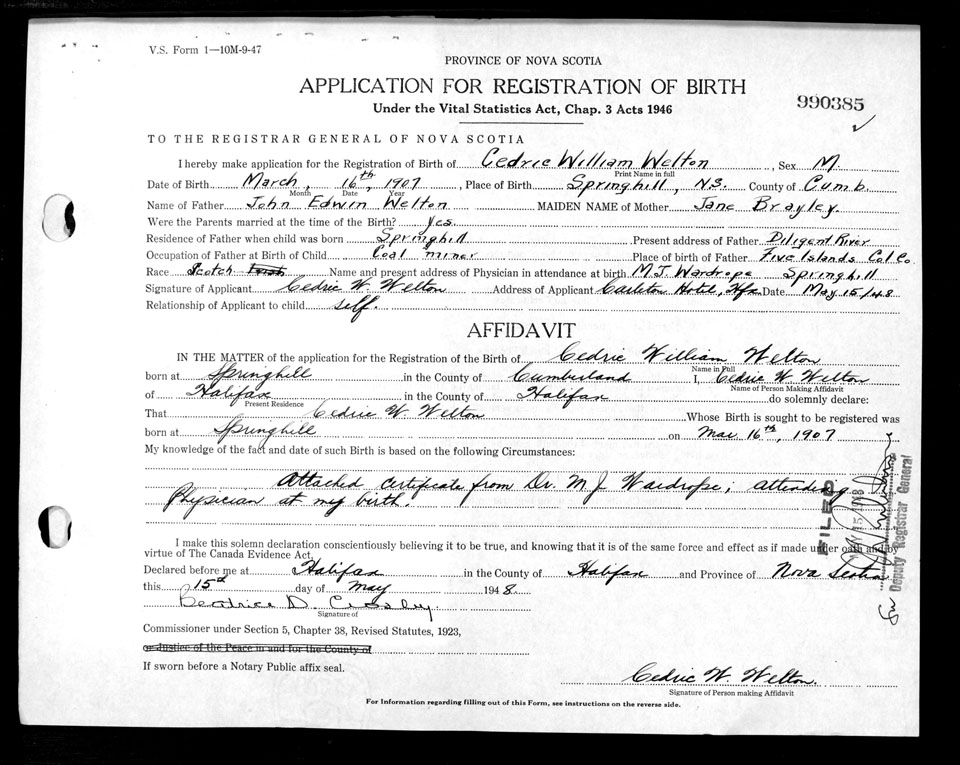 V.S. Form 1—10M-9-47
PROVINCE OF NOVA SCOTIA
APPLICATION FOR REGISTRATION OF BIRTH
990385
Under the Vital Statistics Act, Chap. 3 Acts 1946
TO THE REGISTRAR GENERAL OF NOVA SCOTIA
I hereby make application for the Registration of Birth of Cedric William Welton, Sex M.
Print Name in full
Date of Birth March, 16th, 1907, Place of Birth Springhill, N.S. County of Cumb.
Month Date Year
Name of Father John Edwin Welton MAIDEN NAME of Mother Jane Brayley.
Were the Parents married at the time of the Birth? Yes.
Residence of Father when child was born Springhill Present address of Father Diligent River
Occupation of Father at Birth of Child Coal miner Place of birth of Father Five Islands Col Co.
Race Scotch Name and present address of Physician in attendance at birth M.J. Wardrope Springhill
Signature of Applicant Cedric W. Welton Address of Applicant Carleton Hotel, Hfx Date May 15/48
Relationship of Applicant to child self.
AFFIDAVIT
IN THE MATTER of the application for the Registration of the Birth of Cedric William Welton
Name in Full
born at Springhill in the County of Cumberland I, Cedric W Welton
Name of Person Making Affidavit
of Halifax in the County of Halifax do solemnly declare:
Present Residence
That Cedric W. Welton Whose Birth is sought to be registered was
born at Springhill on Mar 16th, 1907
My knowledge of the fact and date of such Birth is based on the following Circumstances:
Attached certificate from Dr. M J Wardrope; attending
Physician at my birth.
FILED
MAY 15 1948
Deputy Registrar General
I make this solemn declaration conscientiously believing it to be true, and knowing that it is of the same force and effect as if made under oath and by
virtue of The Canada Evidence Act,
Declared before me at Halifax in the County of Halifax and Province of Nova Scotia
this 15th day of May 1948.
Beatrice D. Crosby.
Signature of
Commissioner under Section 5, Chapter 38, Revised Statutes, 1923,
or Justice of the Peace in and for the County of
If sworn before a Notary Public affix seal.
Cedric W. Welton.
Signature of Person making Affidavit
For Information regarding filling out of this Form, see instructions on the reverse side.